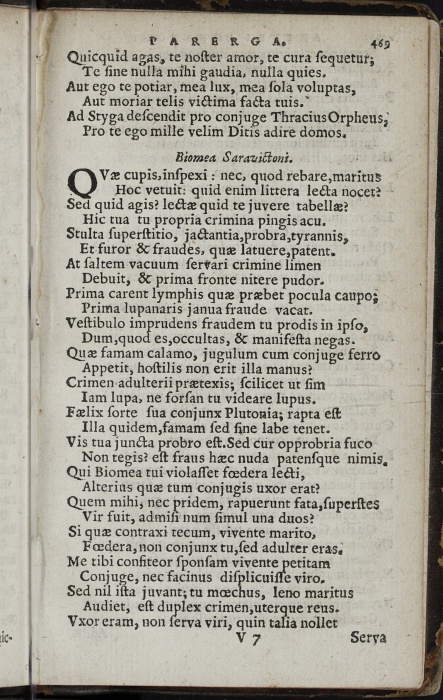 PARERGA. 469
Quicquid agas, te noster amor, te cura sequetur;
Te sine nulla mihi gaudia, nulla quies.
Aut ego te potiar, mea lux, mea sola voluptas,
Aut moriar telis victima facta tuis.
Ad Styga descendit pro conjuge Thracius Orpheus,
Pro te ego mille velim Ditis adire domos.
Biomea Saravictoni.
QVæ cupis, inspexi: nec, quod rebare, maritus
Hoc vetuit: quid enim littera lecta nocet?
Sed quid agis? lectæ quid te juvere tabellæ?
Hic tua tu propria crimina pingis acu.
Stulta superstitio, jactantia, probra, tyrannis,
Et furor & fraudes, quæ latuere, patent.
At saltem vacuum servari crimine limen
Debuit, & prima fronte nitere pudor.
Prima carent lymphis quæ præbet pocula caupo;
Prima lupanaris janua fraude vacat.
Vestibulo imprudens fraudem tu prodis in ipso,
Dum, quod es, occultas, & manifesta negas.
Quæ famam calamo, jugulum cum conjuge ferro
Appetit, hostilis non erit illa manus?
Crimen adulterii prætexis; scilicet ut sim
Iam lupa, ne forsan tu videare lupus.
Fælix sorte sua conjunx Plutonia; rapta est
Illa quidem, famam sed sine labe tenet.
Vis tua juncta probro est. Sed cur opprobria fuco
Non tegis? est fraus hæc nuda patensque nimis.
Qui Biomea tui violasset fœdera lecti,
Alterius quæ tum conjugis uxor erat?
Quem mihi, nec pridem, rapuerunt fata, superstes
Vir fuit, admisi num simul una duos?
Si quæ contraxi tecum, vivente marito,
Fœdera, non conjunx tu, sed adulter eras.
Me tibi confiteor sponsam vivente petitam
Conjuge, nec facinus displicuisse viro.
Sed nil ista juvant; tu mœchus, leno maritus
Audiet, est duplex crimen, uterque reus.
Vxor eram, non serva viri, quin talia nollet
V 7 Serva